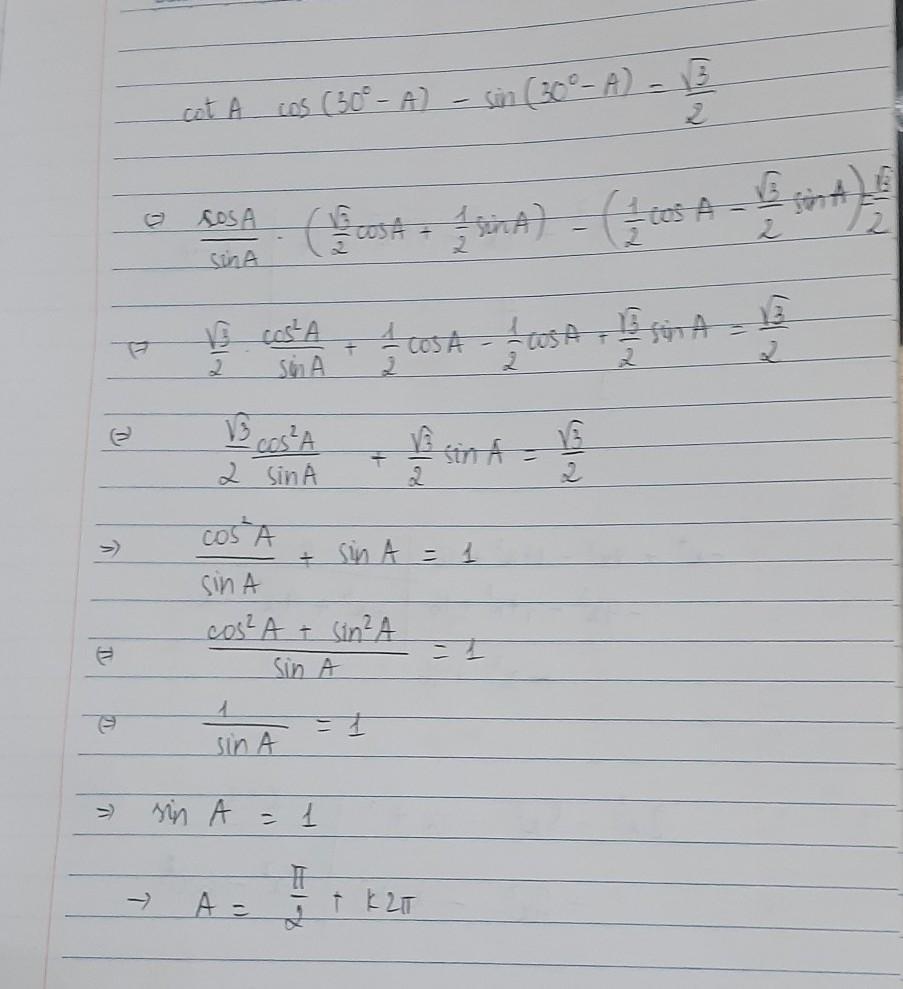 cot A cos (30° - A) - sin (30° - A) = √3/2
⇔ cosA/sinA · (√3/2 cosA + 1/2 sinA) - (1/2 cos A - √3/2 sin A) = √3/2
⇔ √3/2 · cos²A/sin A + 1/2 cosA - 1/2 cosA + √3/2 sin A = √3/2
⇔ √3/2 cos²A/sin A + √3/2 sin A = √3/2
⇒ cos²A/sin A + sin A = 1
⇔ (cos²A + sin²A)/sin A = 1
⇔ 1/sin A = 1
⇒ sin A = 1
→ A = π/2 + k2π